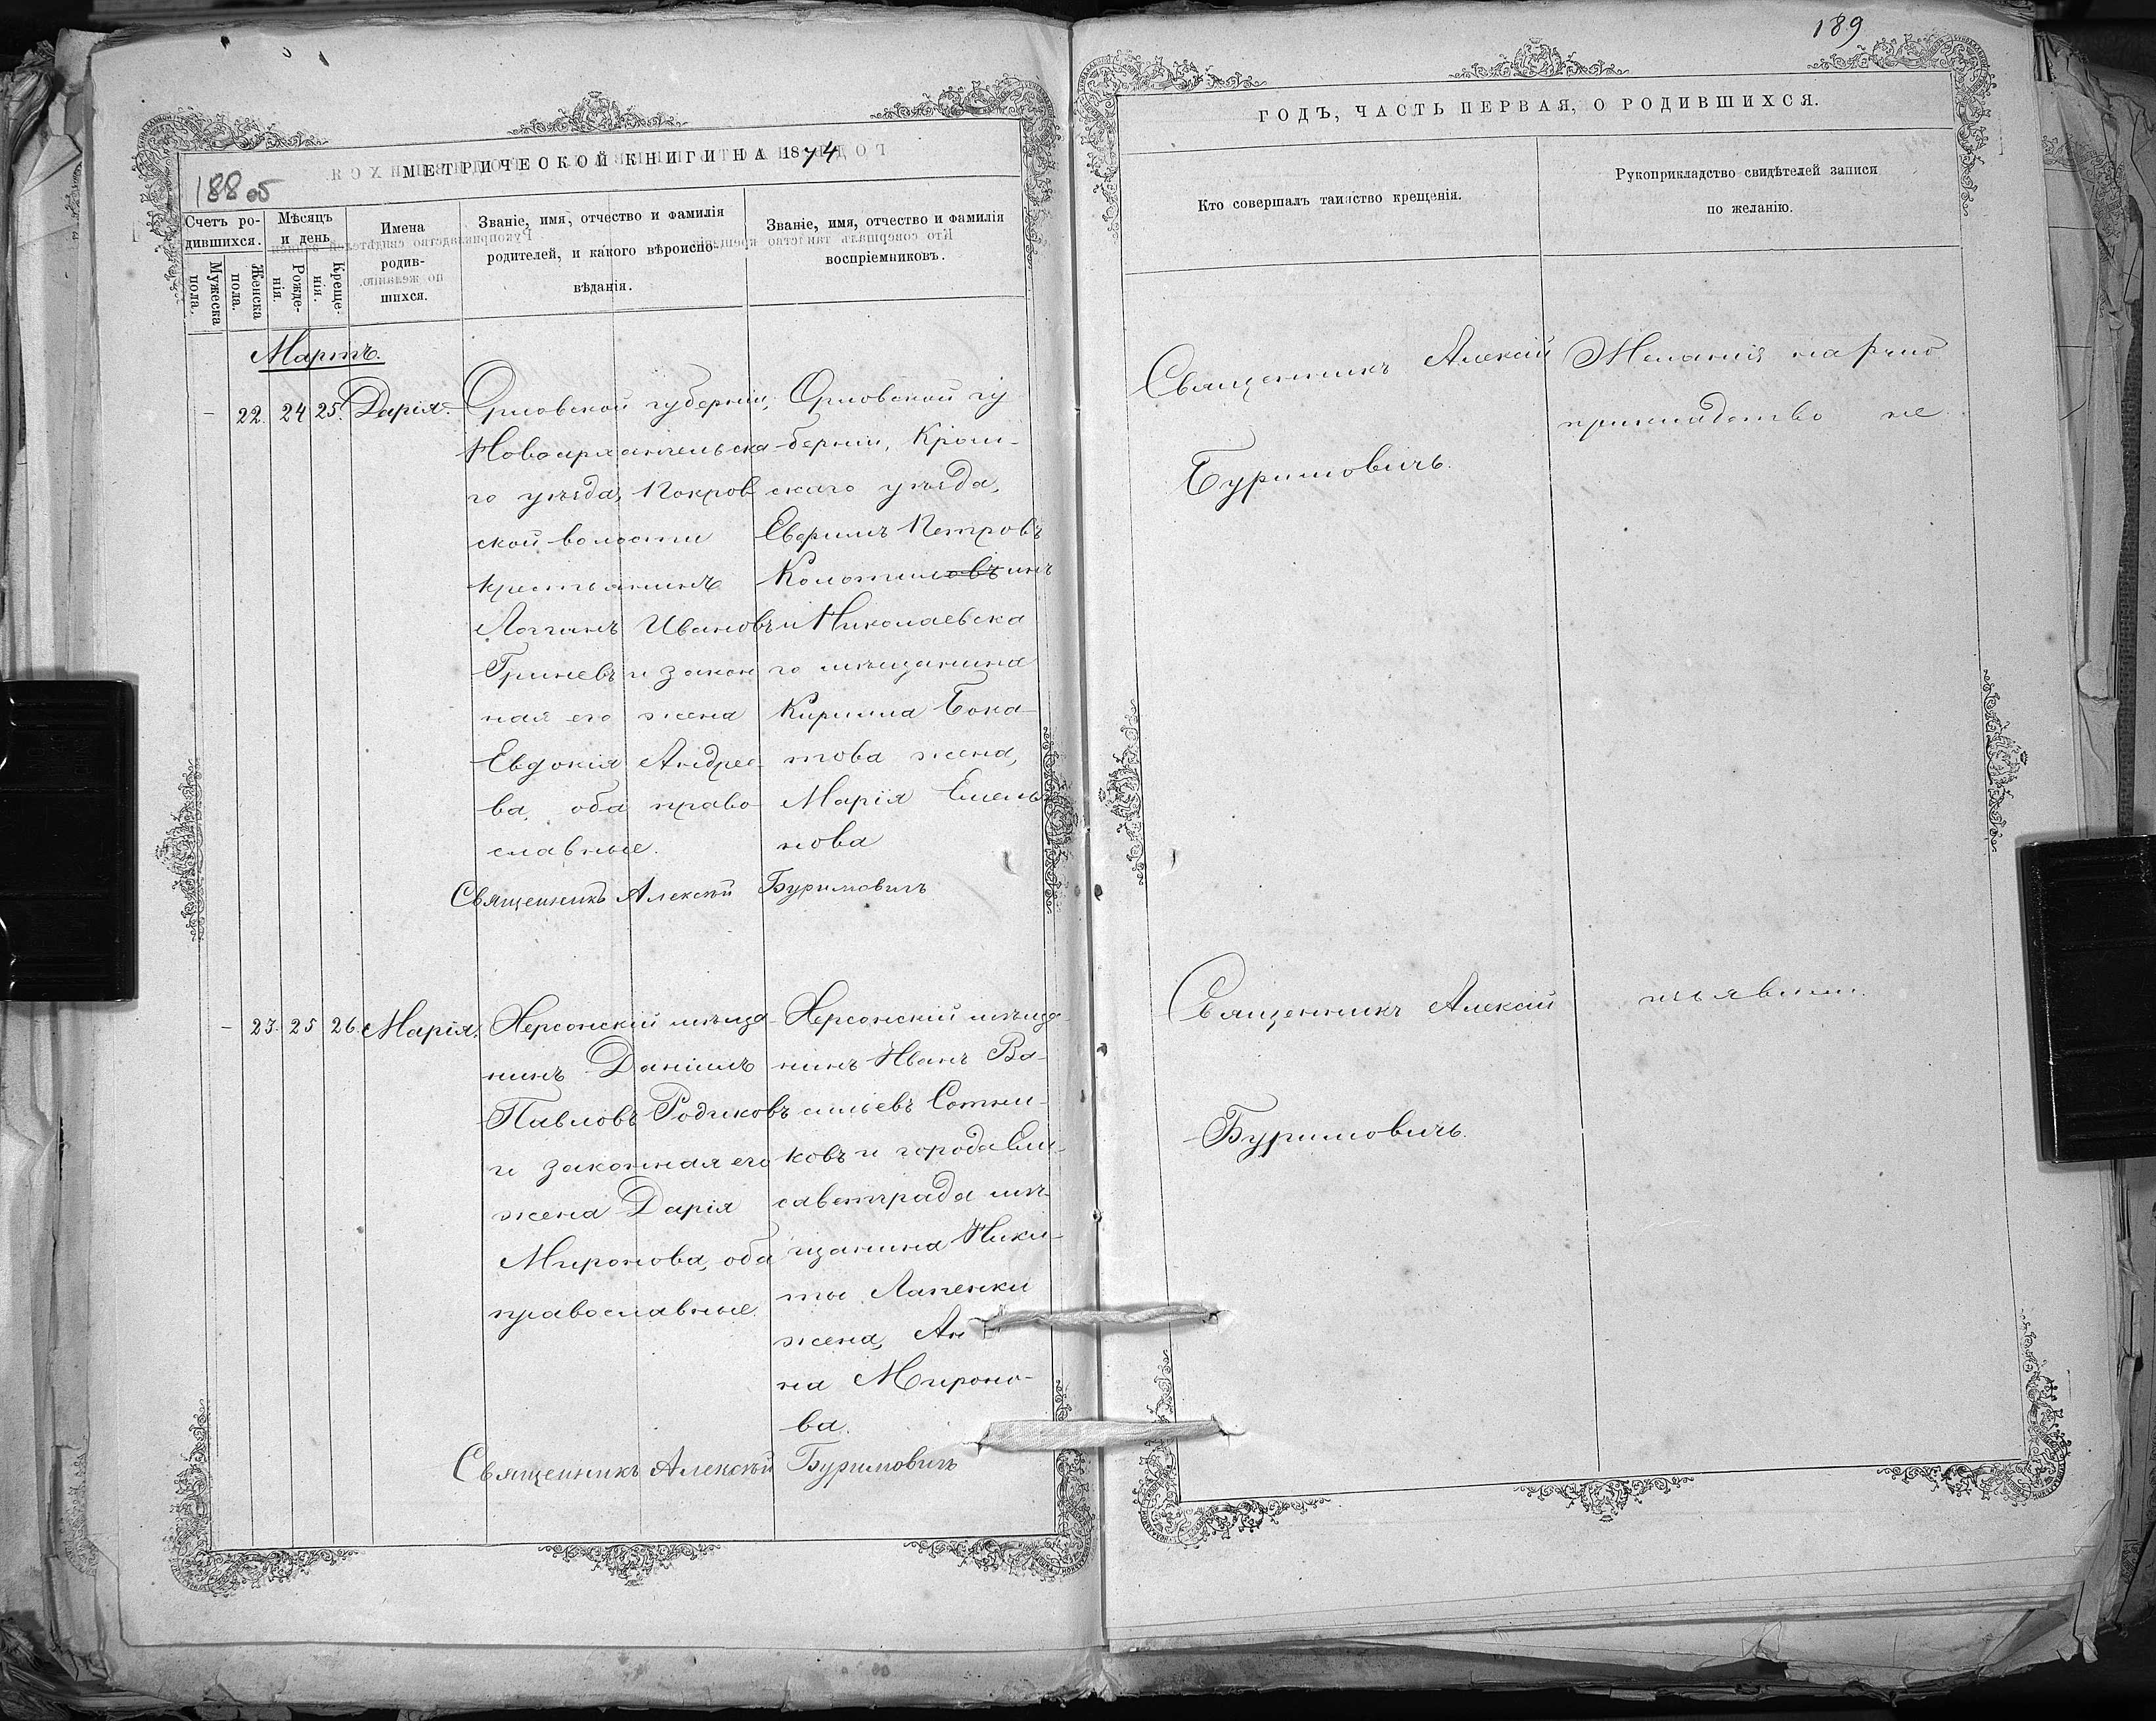 189
МЕТРИЧЕСКОЙ КНИГИ НА 1874
188 об
Счетъ ро-
дившихся.
Мужеска
пола.
Женска
пола.
Мѣсяцъ
и день
Рожде-
нія.
Креще-
нія.
Имена
родив-
шихся.
Званіе, имя, отчество и фамилія
родителей, и какого вѣроиспо-
вѣданія.
Званіе, имя, отчество и фамилія
воспріемниковъ.
Мартъ.
- 22. 24 25. Дарія.
Орловской губерніи,
Новоархангельска
го уѣзда, Покров
ской волости
крестьянинъ
Логгинъ Ивановъ
Гриневъ и закон
ная его жена
Евдокія Андрее-
ва, оба право
славные.
Орловской гу
-берніи, Кром-
скаго уѣзда,
Ефримъ Петровъ
Колотиловъинъ
и Николаевска
го мѣщанина
Кирилла Бока-
това жена,
Марія Емель
нова
Священникъ Алексѣй Буримовичъ
- 23. 25 26. Марія.
Херсонскій мѣща
нинъ Даніилъ
Павловъ Родиковъ
и законная его
жена Дарія
Миронова, оба
православные.
Херсонскій мѣща-
нинъ Иванъ Ва-
сильевъ Сотни-
ковъ и города Ели-
саветграда мѣ-
щанина Ники-
ты Лапенки
жена, Ан
на Мироно-
ва.
Священникъ Алексѣй Буримовичъ
ГОДЪ, ЧАСТЬ ПЕРВАЯ, О РОДИВШИХСЯ.
Кто совершалъ таинство крещенія.
Рукоприкладство свидѣтелей записи
по желанію.
Священникъ Алексій
Буримовичъ.
Желанія на руко
прикладство не
Священникъ Алексій
Буримовичъ.
изъявили.